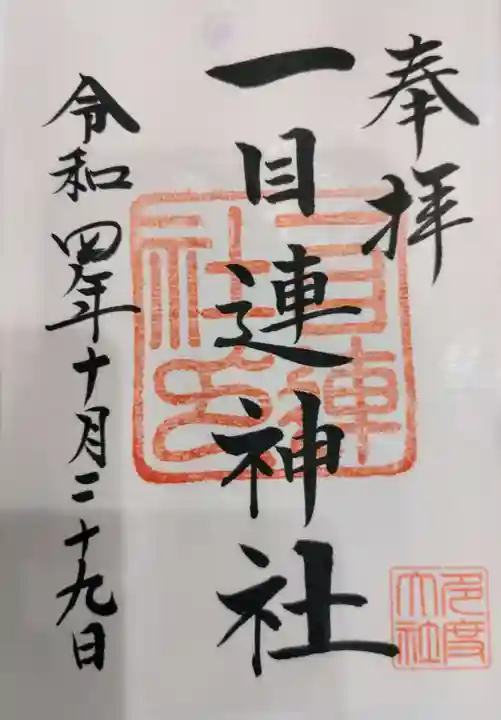 奉拝
一目連神社
令和四年十月二十九日
一目連社印
多度大社